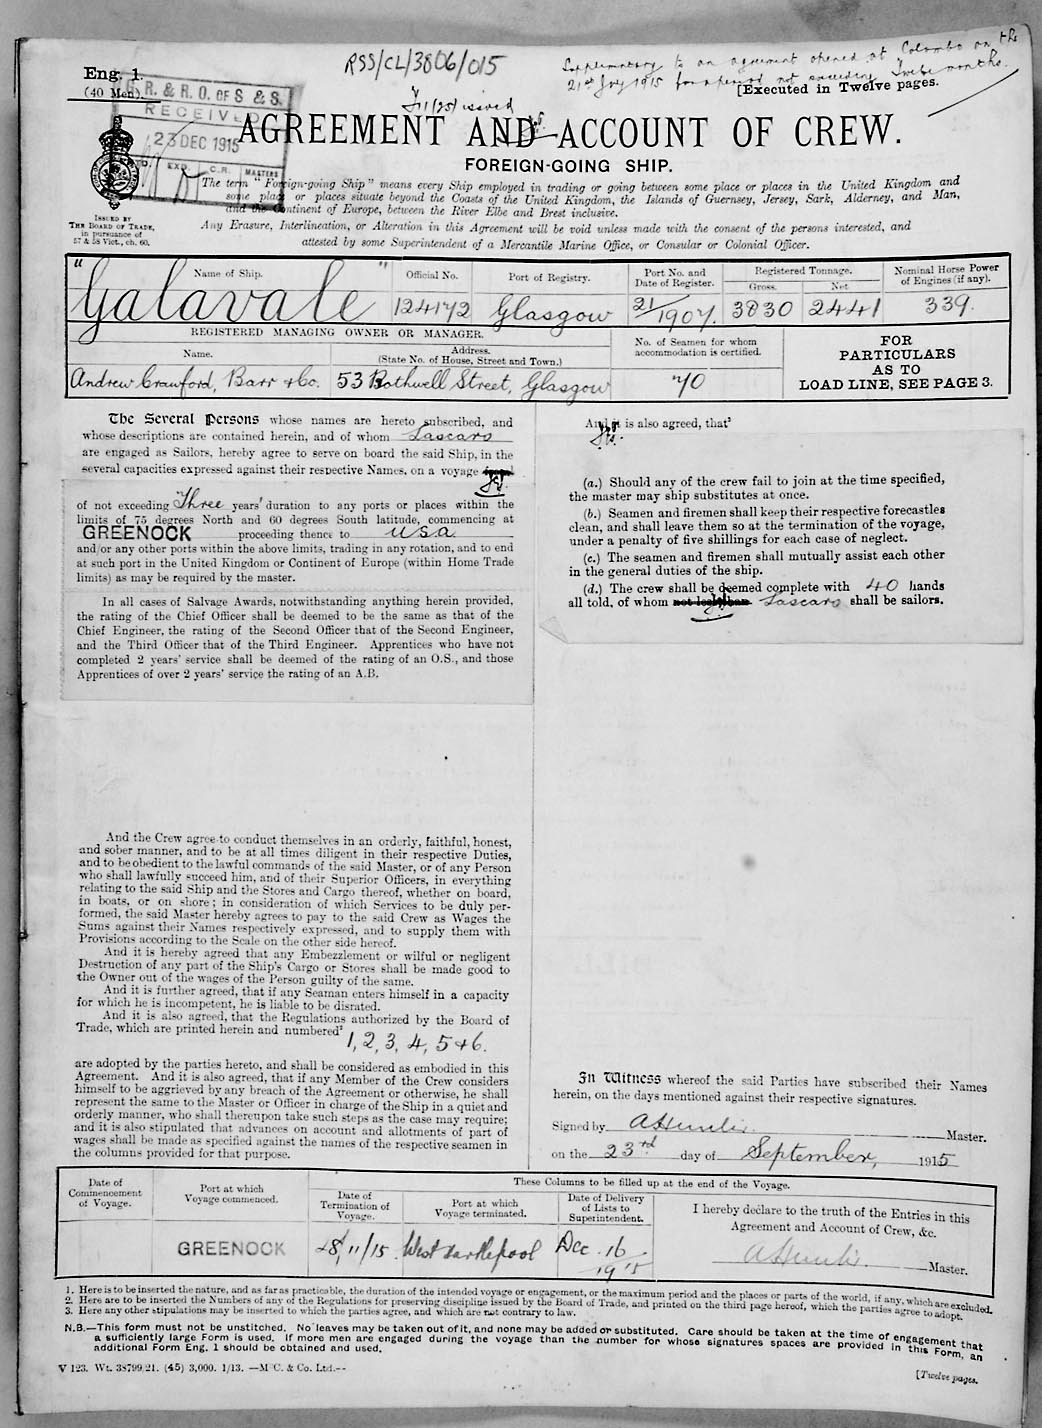 RSS/CL/3806/015
Supplementary to an agreement opened at Colombo on the
21st July 1915 for a period not exceeding Twelve months.
Eng. 1.
(40 Men).
R. & R. O. OF S & S.
RECEIVED
23 DEC 1915
EXD. C.R. MASTERS
issued
[Executed in Twelve pages.
AGREEMENT AND ACCOUNT OF CREW.
FOREIGN-GOING SHIP.
ISSUED BY
THE BOARD OF TRADE,
in pursuance of
57 & 58 Vict., ch. 60.
The term "Foreign-going Ship" means every Ship employed in trading or going between some place or places in the United Kingdom and
some place or places situate beyond the Coasts of the United Kingdom, the Islands of Guernsey, Jersey, Sark, Alderney, and Man,
and the Continent of Europe, between the River Elbe and Brest inclusive.
Any Erasure, Interlineation, or Alteration in this Agreement will be void unless made with the consent of the persons interested, and
attested by some Superintendent of a Mercantile Marine Office, or Consular or Colonial Officer.
Name of Ship. Official No. Port of Registry. Port No. and Date of Register. Registered Tonnage. Gross. Net. Nominal Horse Power of Engines (if any).
"Galavale" 124172 Glasgow 21/1907. 3830 2441 339.
REGISTERED MANAGING OWNER OR MANAGER.
Name. Address.
(State No. of House, Street and Town.)
No. of Seamen for whom
accommodation is certified.
FOR
PARTICULARS
AS TO
LOAD LINE, SEE PAGE 3.
Andrew Crawford, Barr & Co. 53 Bothwell Street, Glasgow 70
The Several Persons whose names are hereto subscribed, and
whose descriptions are contained herein, and of whom Lascars
are engaged as Sailors, hereby agree to serve on board the said Ship, in the
several capacities expressed against their respective Names, on a voyage
of not exceeding Three years' duration to any ports or places within the
limits of 75 degrees North and 60 degrees South latitude, commencing at
GREENOCK proceeding thence to USA
and/or any other ports within the above limits, trading in any rotation, and to end
at such port in the United Kingdom or Continent of Europe (within Home Trade
limits) as may be required by the master.
In all cases of Salvage Awards, notwithstanding anything herein provided,
the rating of the Chief Officer shall be deemed to be the same as that of the
Chief Engineer, the rating of the Second Officer that of the Second Engineer,
and the Third Officer that of the Third Engineer. Apprentices who have not
completed 2 years' service shall be deemed of the rating of an O.S., and those
Apprentices of over 2 years' service the rating of an A.B.
And the Crew agree to conduct themselves in an orderly, faithful, honest,
and sober manner, and to be at all times diligent in their respective Duties,
and to be obedient to the lawful commands of the said Master, or of any Person
who shall lawfully succeed him, and of their Superior Officers, in everything
relating to the said Ship and the Stores and Cargo thereof, whether on board,
in boats, or on shore; in consideration of which Services to be duly per-
formed, the said Master hereby agrees to pay to the said Crew as Wages the
Sums against their Names respectively expressed, and to supply them with
Provisions according to the Scale on the other side hereof.
And it is hereby agreed that any Embezzlement or wilful or negligent
Destruction of any part of the Ship's Cargo or Stores shall be made good to
the Owner out of the wages of the Person guilty of the same.
And it is further agreed, that if any Seaman enters himself in a capacity
for which he is incompetent, he is liable to be disrated.
And it is also agreed, that the Regulations authorized by the Board of
Trade, which are printed herein and numbered²
1, 2, 3, 4, 5 & 6.
are adopted by the parties hereto, and shall be considered as embodied in this
Agreement. And it is also agreed, that if any Member of the Crew considers
himself to be aggrieved by any breach of the Agreement or otherwise, he shall
represent the same to the Master or Officer in charge of the Ship in a quiet and
orderly manner, who shall thereupon take such steps as the case may require;
and it is also stipulated that advances on account and allotments of part of
wages shall be made as specified against the names of the respective seamen in
the columns provided for that purpose.
And it is also agreed, that³
(a.) Should any of the crew fail to join at the time specified,
the master may ship substitutes at once.
(b.) Seamen and firemen shall keep their respective forecastles
clean, and shall leave them so at the termination of the voyage,
under a penalty of five shillings for each case of neglect.
(c.) The seamen and firemen shall mutually assist each other
in the general duties of the ship.
(d.) The crew shall be deemed complete with 40 hands
all told, of whom not less than Lascars shall be sailors.
In Witness whereof the said Parties have subscribed their Names
herein, on the days mentioned against their respective signatures.
Signed by Master.
on the 23rd day of September, 1915
Date of
Commencement
of Voyage.
Port at which
Voyage commenced.
These Columns to be filled up at the end of the Voyage.
Date of
Termination of
Voyage.
Port at which
Voyage terminated.
Date of Delivery
of Lists to
Superintendent.
I hereby declare to the truth of the Entries in this
Agreement and Account of Crew, &c.
GREENOCK 28/11/15 West Hartlepool Dec. 16 1915
Master.
1. Here is to be inserted the nature, and as far as practicable, the duration of the intended voyage or engagement, or the maximum period and the places or parts of the world, if any, which are excluded.
2. Here are to be inserted the Numbers of any of the Regulations for preserving discipline issued by the Board of Trade, and printed on the third page hereof, which the parties agree to adopt.
3. Here any other stipulations may be inserted to which the parties agree, and which are not contrary to law.
N.B.—This form must not be unstitched. No leaves may be taken out of it, and none may be added or substituted. Care should be taken at the time of engagement that
a sufficiently large Form is used. If more men are engaged during the voyage than the number for whose signatures spaces are provided in this Form, an
additional Form Eng. 1 should be obtained and used.
V 123. Wt. 38799/21. (45) 3,000. 1/13. —M'C. & Co. Ltd.—
[Twelve pages.